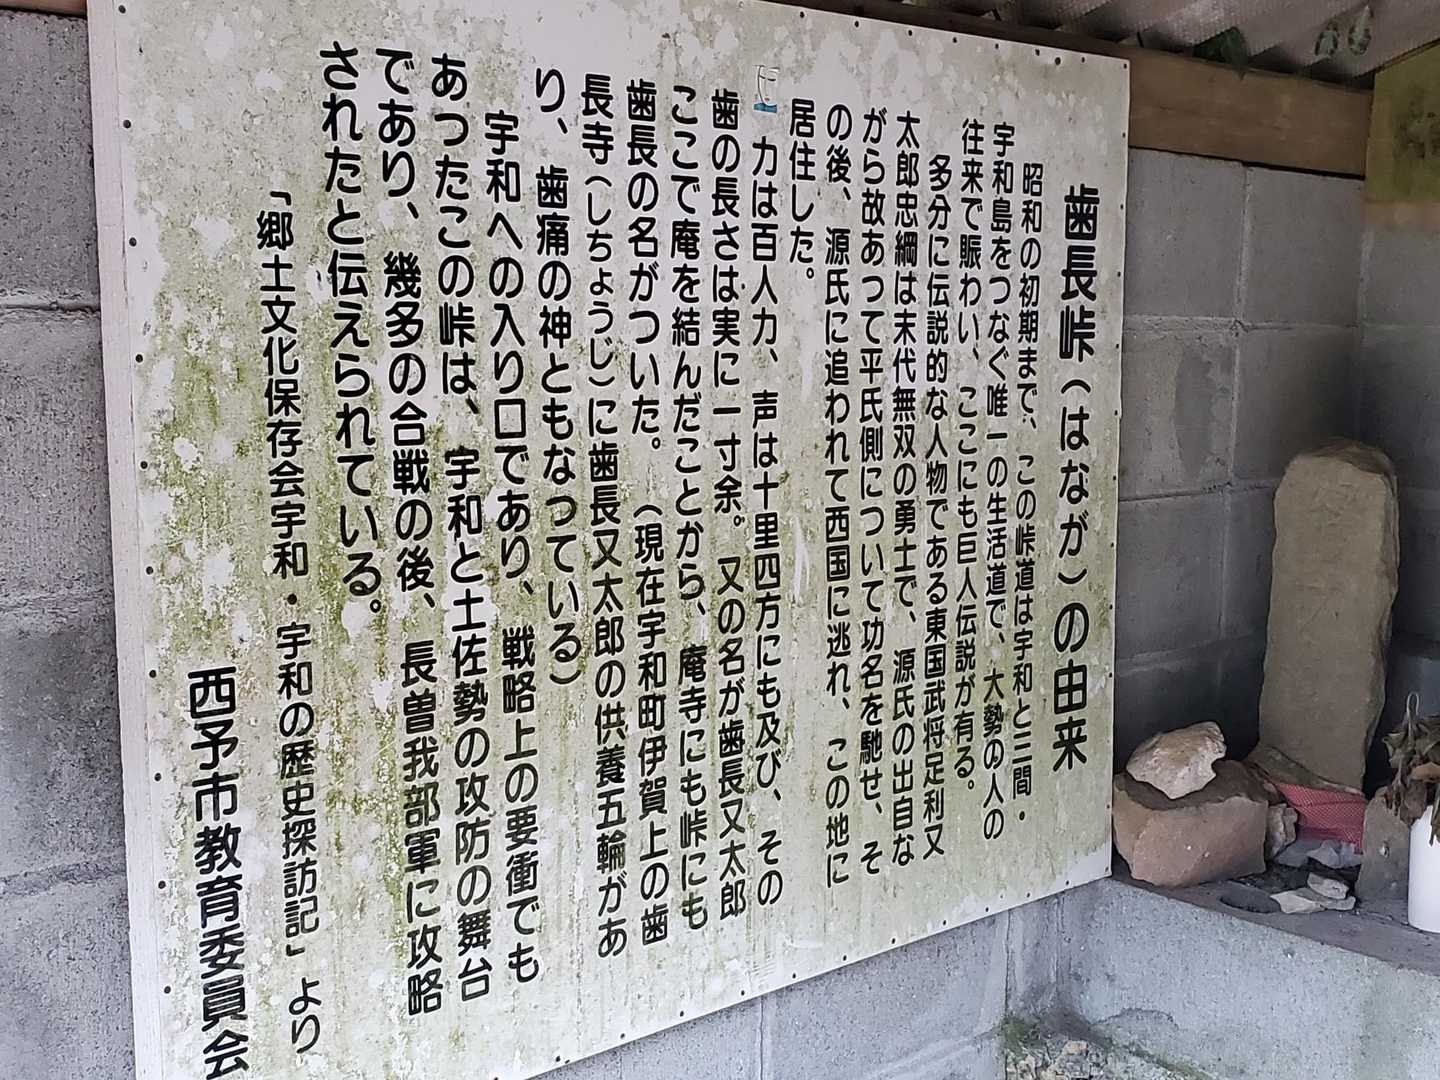 歯長峠（はなが）の由来
昭和の初期まで、この峠道は宇和と三間・
宇和島をつなぐ唯一の生活道で、大勢の人の
往来で賑わい、ここにも巨人伝説が有る。
多分に伝説的な人物である東国武将足利又
太郎忠綱は末代無双の勇士で、源氏の出自な
がら故あって平氏側について功名を馳せ、そ
の後、源氏に追われて西国に逃れ、この地に
居住した。
力は百人力、声は十里四方にも及び、その
歯の長さは実に一寸余。又の名が歯長又太郎
ここで庵を結んだことから、庵寺にも峠にも
歯長の名がついた。（現在宇和町伊賀上の歯
長寺（しちょうじ）に歯長又太郎の供養五輪があ
り、歯痛の神ともなっている）
宇和への入り口であり、戦略上の要衝でも
あったこの峠は、宇和と土佐勢の攻防の舞台
であり、幾多の合戦の後、長曽我部軍に攻略
されたと伝えられている。
「郷土文化保存会宇和・宇和の歴史探訪記」より
西予市教育委員会